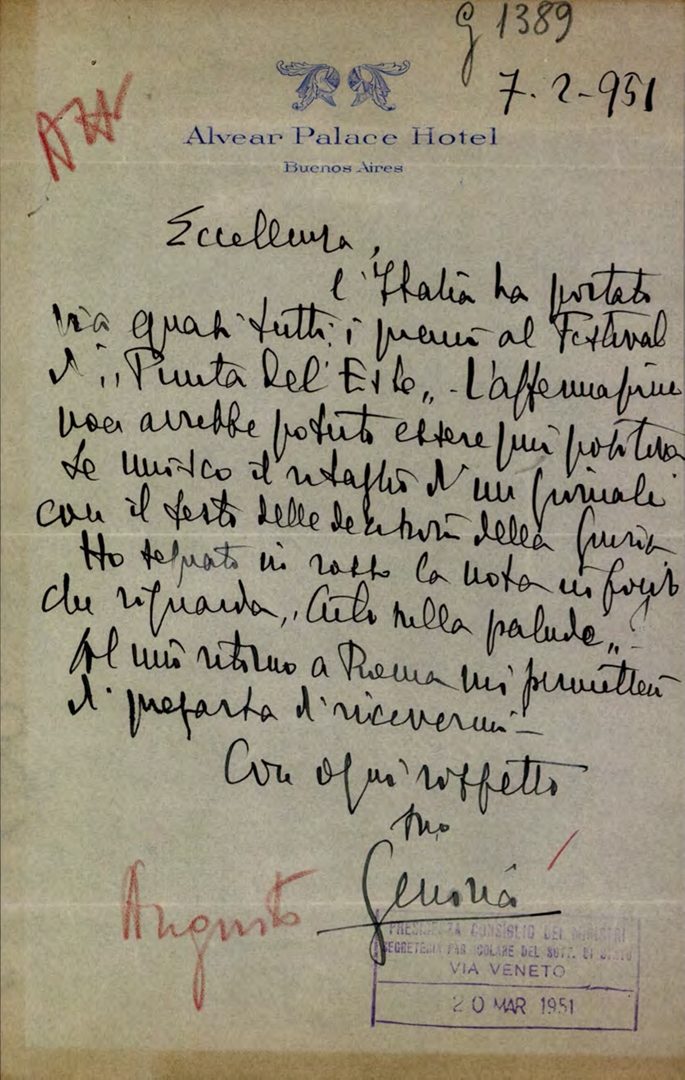 g 1389
7-2-951
Alvear Palace Hotel
Buenos Aires
Eccellenza,
l'Italia ha portato
via quasi tutti i premi al Festival
di „Punta del Este„. L'affermazione
non avrebbe potuto essere più positiva
Le unisco il ritaglio di un giornale
con il testo delle decisioni della Giuria
Ho segnato in rosso la nota in
che riguarda „Cielo sulla palude„-
Al mio ritorno a Roma mi permetterò
di pregarla di ricevermi-
Con ogni rispetto
suo
Genina
Augusto
PRESIDENZA CONSIGLIO DEI MINISTRI
SEGRETERIA PARTICOLARE DEL SOTT. DI STATO
VIA VENETO
20 MAR 1951